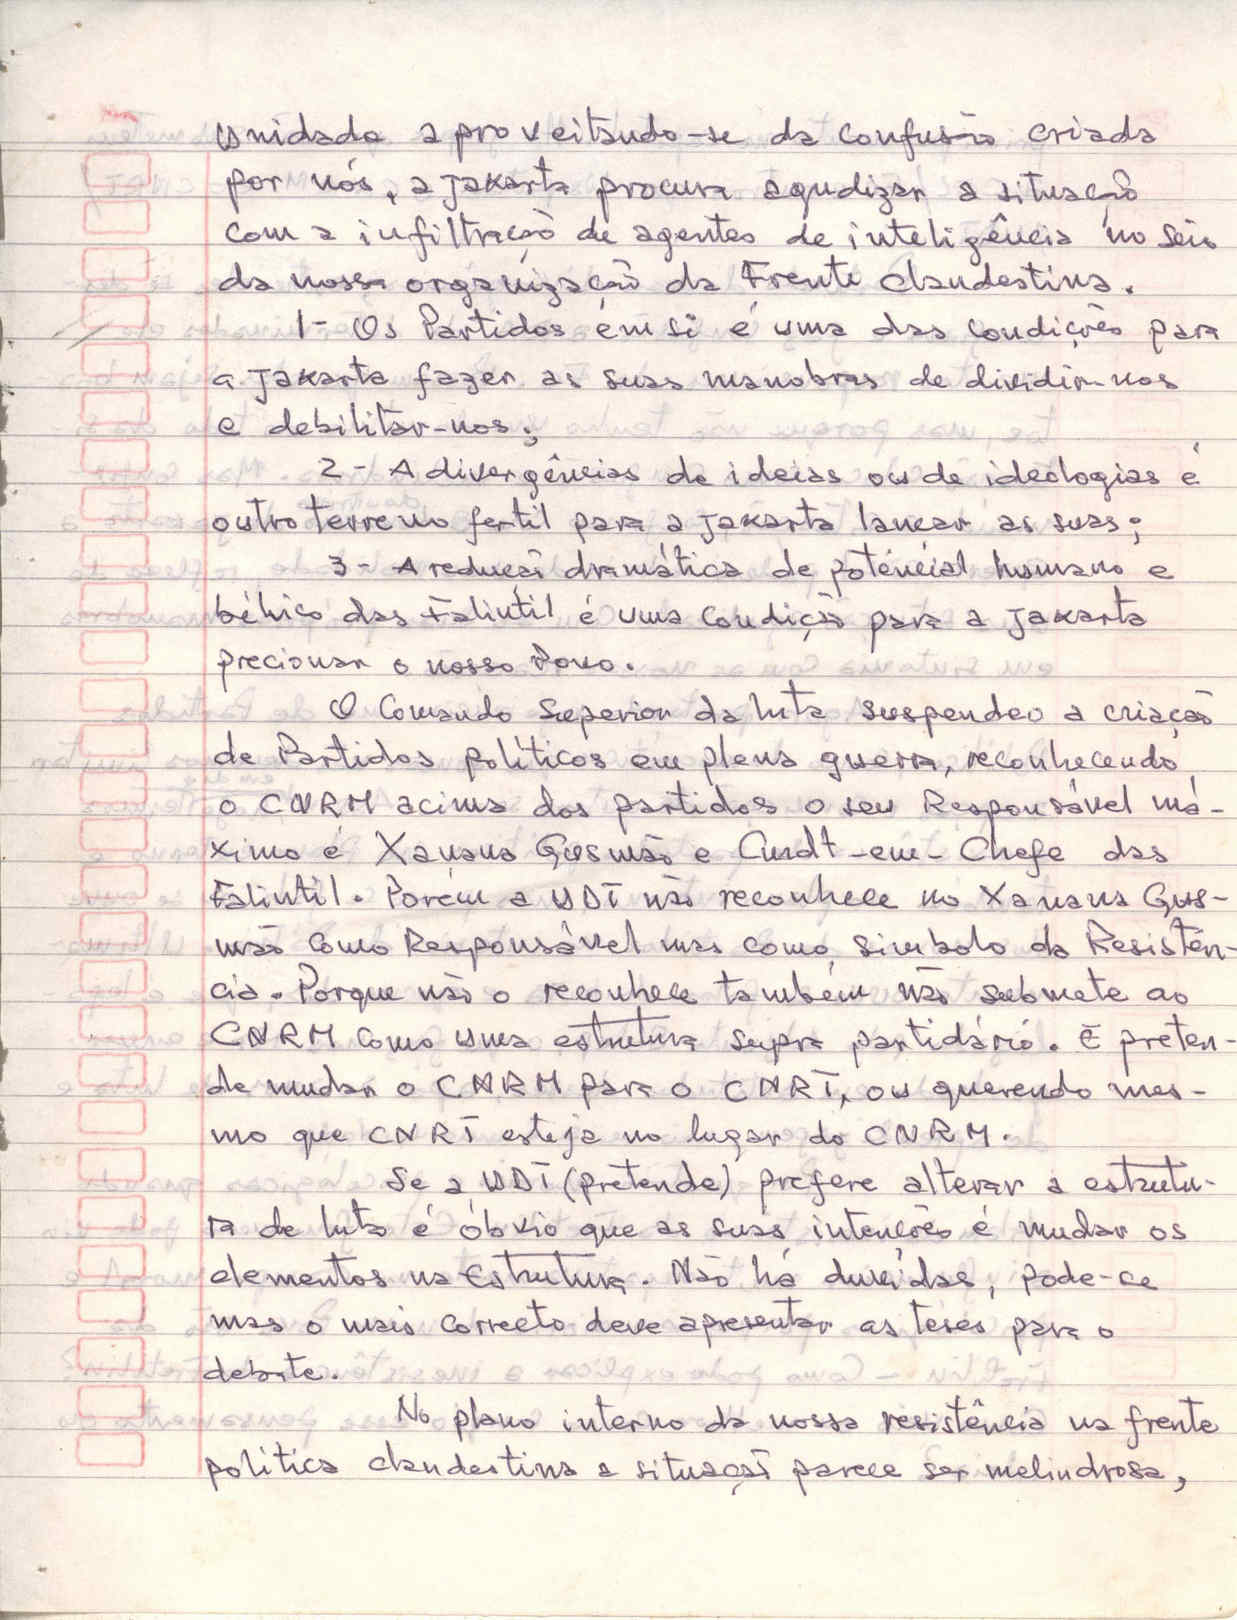 unidade aproveitando-se da confusão criada
por nós, a Jakarta procura agudizar a situação
com a infiltração de agentes de inteligência no seio
da nossa organização da Frente Clandestina.
1- Os Partidos em si é uma das condições para
a Jakarta fazer as suas manobras de dividir-nos
e debilitar-nos;
2- A divergências de ideias ou de ideologias é
outro terreno fertil para a Jakarta lançar as suas;
3- A redução dramática de poténcial humano e
bélico das Falintil é uma condição para a Jakarta
precionar o nosso Povo.
O Comando Superior da luta suspendeo a criação
de Partidos políticos em plena guerra, reconhecendo
o CNRM acima dos partidos o seu Responsável má-
ximo é Xanana Gusmão e Cmdt-em-Chefe das
Falintil. Porém a UDT não reconhece no Xanana Gus-
mão como Responsável mas como simbolo da Resistên-
cia. Porque não o reconhece também não submete ao
CNRM como uma estrutura supra partidário. E preten-
de mudar o CNRM para o CNRT, ou querendo mes-
mo que CNRT esteja no lugar do CNRM.
Se a UDT (pretende) prefere alterar a estrutu-
ra de luta é óbvio que as suas intenções é mudar os
elementos na Estrutura. Não há duvidas, pode-ce
mas o mais correcto deve apresentar as teses para o
debate.
No plano interno da nossa resistência na frente
política clandestina a situação parece ser melindrosa,